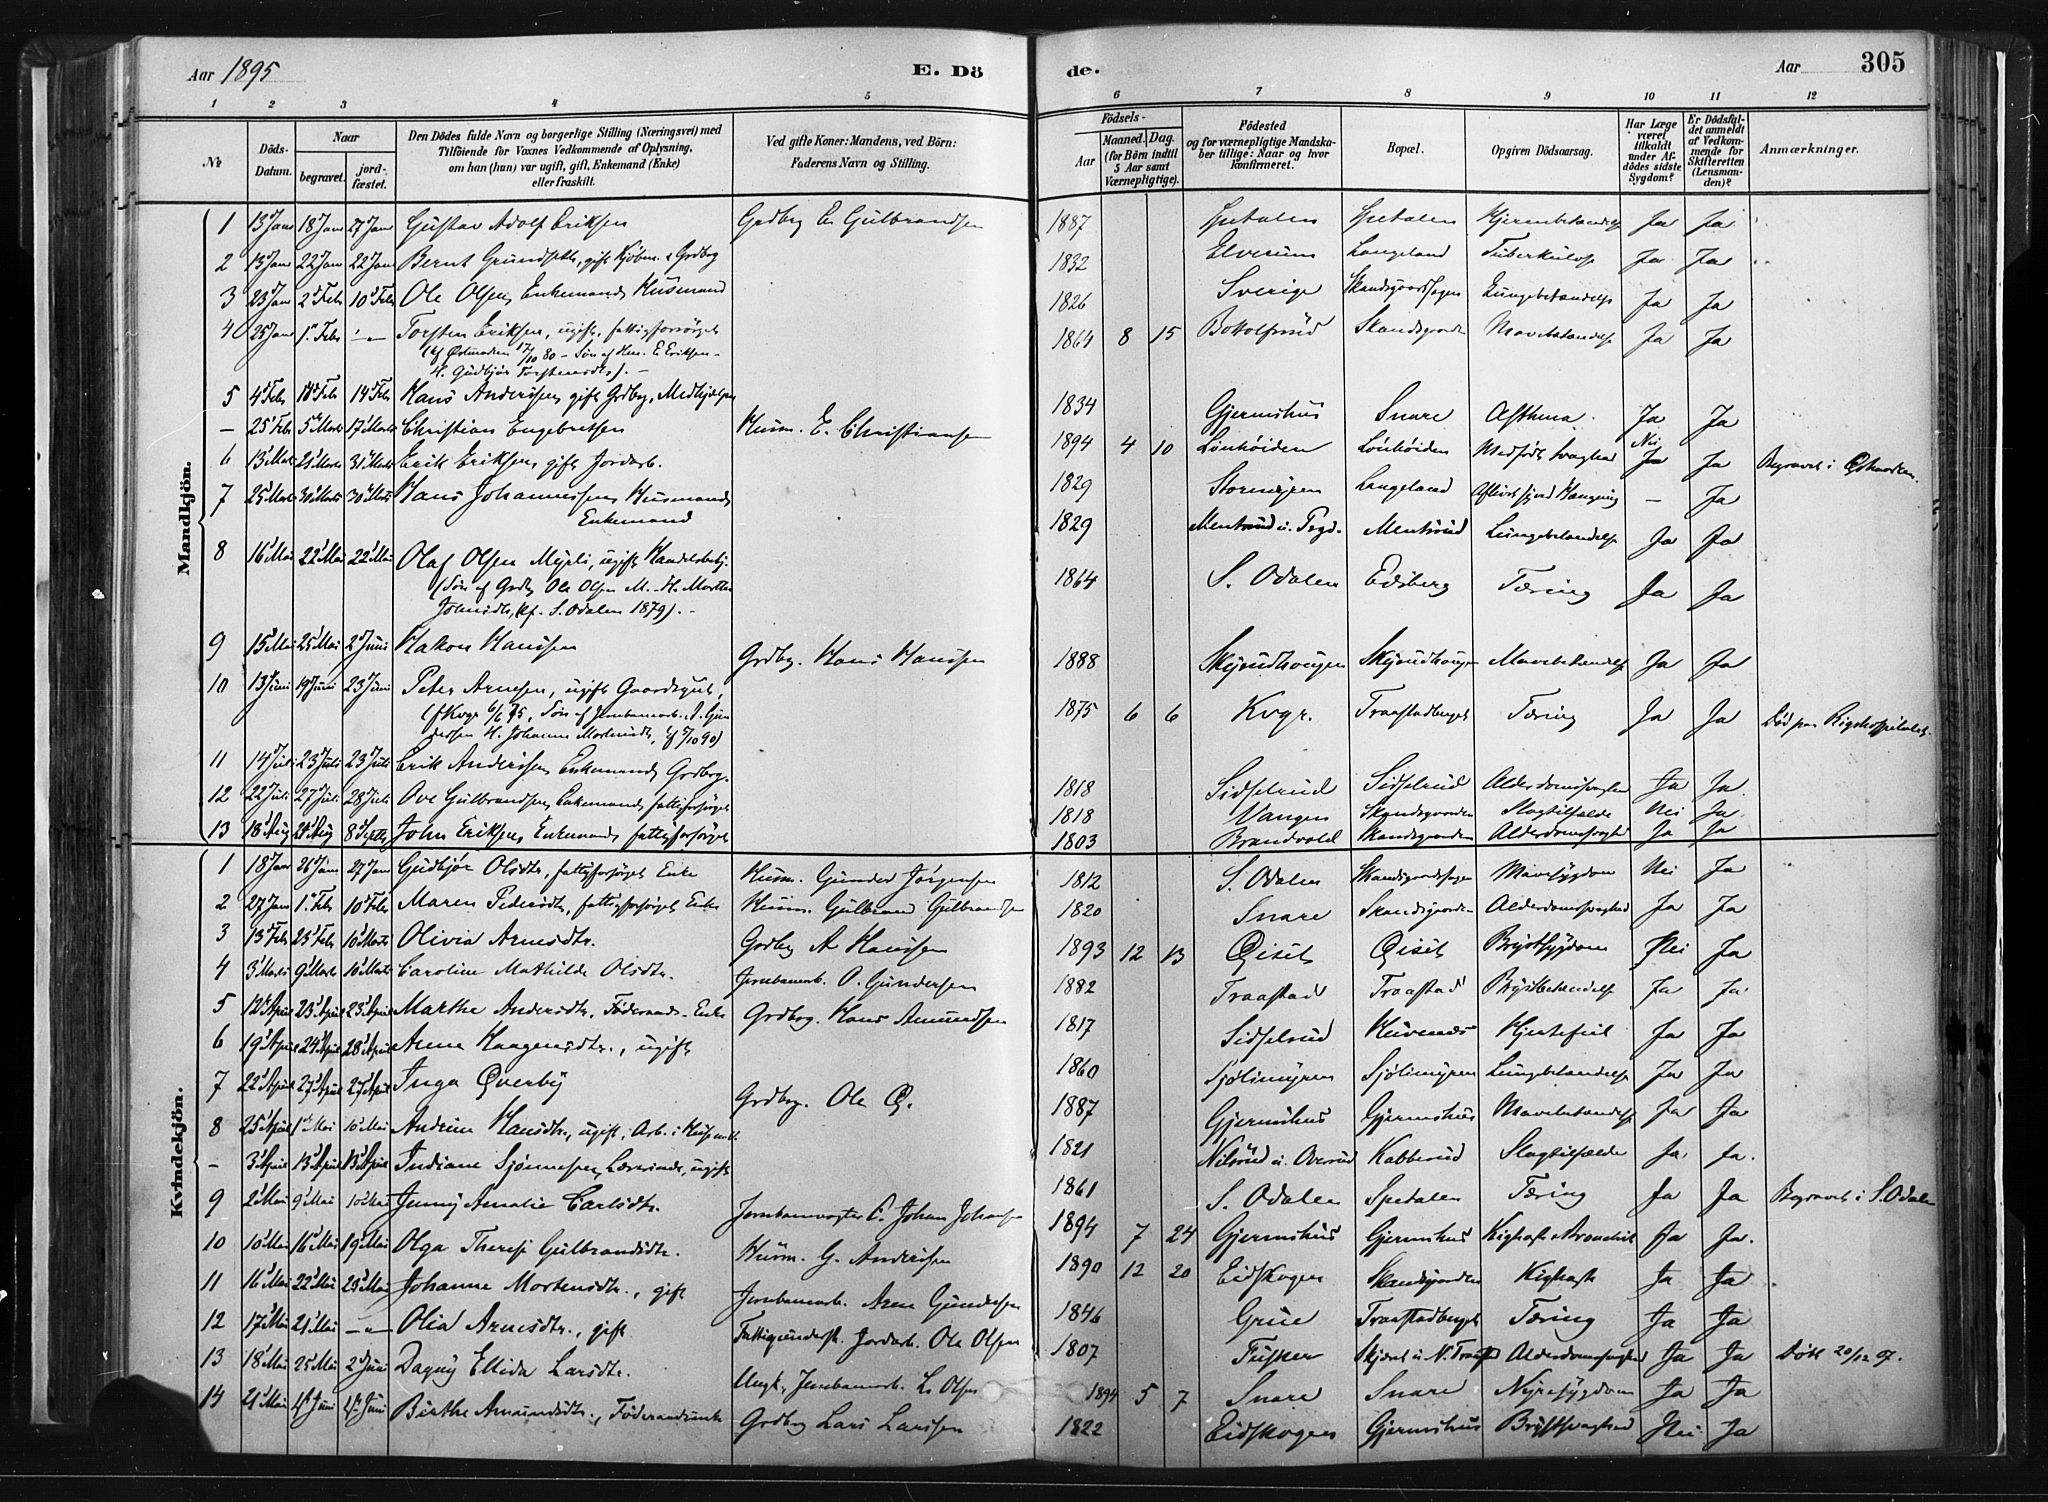 Aar 1895 E. Dö de. Aar 305
1 2 3 4 5 6 7 8 9 10 11 12
No Döds-Datum. Naar begravet. jord-fæstet. Den Dödes fulde Navn og borgerlige Stilling (Næringsvei) med Tilföiende for Voxnes Vedkommende af Oplysning, om han (hun) var ugift, gift, Enkemand (Enke) eller fraskilt. Ved gifte Koner: Mandens, ved Börn: Faderens Navn og Stilling. Födsels- Aar Maaned. Dag. (for Börn indtil 5 Aar samt Værnepligtige). Födested og for værnepligtige Mandskaber tillige: Naar og hvor konfirmeret. Bopæl. Opgiven Dödsaarsag. Har Læge været tilkaldt under Afdödes sidste Sygdom? Er Dödsfaldet anmeldt af Vedkommende for Skifteretten (Lensmanden)? Anmærkninger.
Mandkjön.
1 13 Jan 18 Jan 27 Jan Gustav Adolf Eriksen Grdbrg E. Gulbrandsen 1887 Spetalen Spetalen Hjernebetændelse Ja Ja
2 13 Jan 22 Jan 22 Jan Bernt Grundseth, gift Kjöbm. & Grdbrg 1832 Elverum Langeland Tuberkulose Ja Ja
3 23 Jan 2 Feb 10 Feb Ole Olsen, Enkemand, Husmand 1826 Sverige Lungebetændelse Ja Ja
4 25 Jan 1 Feb -"- Torsten Eriksen, ugift, fattigforsörget 1864 8 15 Skandsgaarden Mavebetændelse Ja Ja
(kf Östmarken 17/10 80 - Sön af Hm. E. Eriksen -
H. Gudbjör Torstensdtr). -
5 4 Feb 14 Feb 14 Feb Hans Andersen, gift Grdbrg, Medhjelper 1834 Gjermshus Snare Asthma Ja Ja
- 25 Feb 5 Marts 17 Marts Christian Engebretsen Husm. E. Christiansen 1894 4 10 Lönhöiden Lönhöiden Medfödt Svaghed Nei Ja
6 13 Marts 21 Marts 31 Marts Erik Eriksen, gift Jordarb. 1829 Langeland Ja Ja Begravet i Östmarken.
7 25 Marts 30 Marts 30 Marts Hans Johannessen, Husmand, 1829 Mentsrud Lungebetændelse - Ja
Enkemand
8 16 Mai 22 Mai 22 Mai Olaf Olsen Myrli, ugift Handelsbetj. 1864 S. Odalen Edsberg Tæring Ja Ja
(Sön af Grdbr Ole Olsen M. - H. Marthe
Johnsdtr, kf. S. Odalen 1879). -
9 15 Mai 25 Mai 2 Juni Hakon Hansen Grdbrg. Hans Hansen 1888 Mavebetændelse Ja Ja
10 13 Juni 19 Juni 23 Juni Peter Arnesen, ugift Gaardsgut, 1875 6 6 Kvgr. Traastadberget Tæring Ja Ja Död paa Rigshospitalet.
(f Kvgr 6/6 75, Sön af Jernbanearb. A. Gun
dersen H. Johanne Mortensdtr, kf 5/10 90)
11 14 Juli 23 Juli 23 Juli Erik Andersen, Enkemand, Grdbrg. 1818 Sidselrud Sidselrud Alderdomssvaghed Ja Ja
12 22 Juli 27 Juli 28 Juli Ove Gulbrandsen, Enkemand, fattigforsörget 1818 Vangen Skandsgaarden Slagtilfælde Nei Ja
13 18 Aug 25 Aug 8 Septbr John Eriksen, Enkemand, fattigforsörget 1803 Brandvold Skandsgaarden Alderdomssvaghed Ja Ja
Kvindekjön.
1 18 Jan 26 Jan 27 Jan Gudbjör Olsdtr, fattigforsörget Enke Husm. Gunder Jörgensen 1812 S. Odalen Mavesygdom Nei Ja
2 27 Jan 1 Feb 10 Feb Maren Pedersdtr, fattigforsörget Enke Husm. Gulbrand Gulbrandsen 1820 Snare Skandsgaarden Alderdomssvaghed Ja Ja
3 13 Feb 23 Feb 10 Marts Olivia Arnesdtr. Grdbrg A Hansen 1893 12 13 Öiset Öiset Brystsygdom Nei Ja
4 3 Marts 9 Marts 10 Marts Caroline Mathilde Olsdtr. Jernbanearb. O. Gundersen 1882 Traastad Traastad Brystbetændelse Ja Ja
5 12 April 23 April 23 April Marthe Andersdtr, Föderaads-Enke Grdbrg. Hans Amundsen 1817 Sidselrud Hjertefeil Ja Ja
6 19 April 24 April 28 April Anne Haagensdtr., ugift 1860 Sjölimyren Sjölimyren Lungebetændelse Ja Ja
7 22 April 27 April 27 April Inga Overby Grdbrg. Ole O. 1887 Gjermshus Gjermshus Mavebetændelse Ja Ja
8 25 April 1 Mai 10 Mai Andrine Hansdtr., ugift, Arb. i 1821 Nilsrud u. Overud Kabberud Slagtilfælde Ja Ja.
- 3 April 13 April 13 April Indiane Sjønnesen, Lærerinde, ugift 1861 S. Odalen Spetalen Tæring Ja Ja Begravet i S. Odalen
9 2 Mai 9 Mai 10 Mai Jenny Amalie Carlsdtr. Jernbanevogter C. Johan Johansen 1894 7 24 Gjermshus Gjermshus Kighoste & Bronchit Ja Ja.
10 10 Mai 16 Mai 19 Mai Olga Therese Gulbrandsdtr. Husm. G. Andersen 1890 12 20 Eidskogen Skandsgaarden Kighoste Ja Ja
11 16 Mai 22 Mai 23 Mai Johanne Mortensdtr., gift Jernbanearb. Arne Gundersen 1846 Grue Traastadberget Tæring Ja Ja
12 17 Mai 21 Mai -"- Olia Arnesdtr., gift Fattigunderst. Jordarb. Ole Olsen 1807 Alderdomssvaghed Ja Ja Döbt 20/12 07.
13 18 Mai 25 Mai 2 Juni Dagny Ellida Larsdtr. Ungk., Jernbanearb. L. Olsen 1894 5 7 Snare Snare Nyresygdom Ja Ja
14 21 Mai 4 Juni 4 Juni Birthe Amundsdtr., Föderaadsenke Grdbrg Lars Larssen 1822 Eidskogen Gjermshus Brystsvaghed Nei Ja